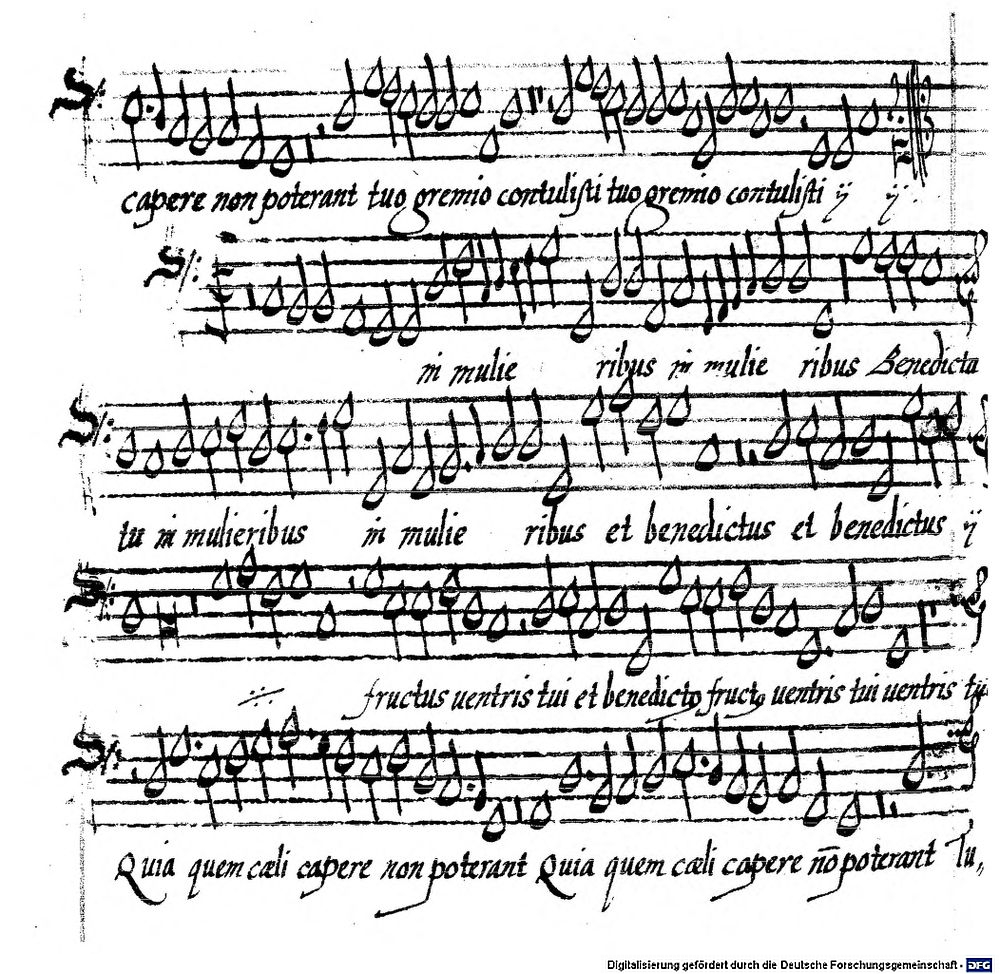 capere non poterant tuo gremio contulisti tuo gremio contulisti ij ij.
in mulie ribus in mulie ribus Benedicta
tu in mulieribus in mulie ribus et benedictus et benedictus ij
fructus uentris tui et benedictꝯ fructꝯ uentris tui uentris tui
Quia quem cæli capere non poterant Quia quem cæli capere nō poterant Tu,,
Digitalisierung gefördert durch die Deutsche Forschungsgemeinschaft - DFG